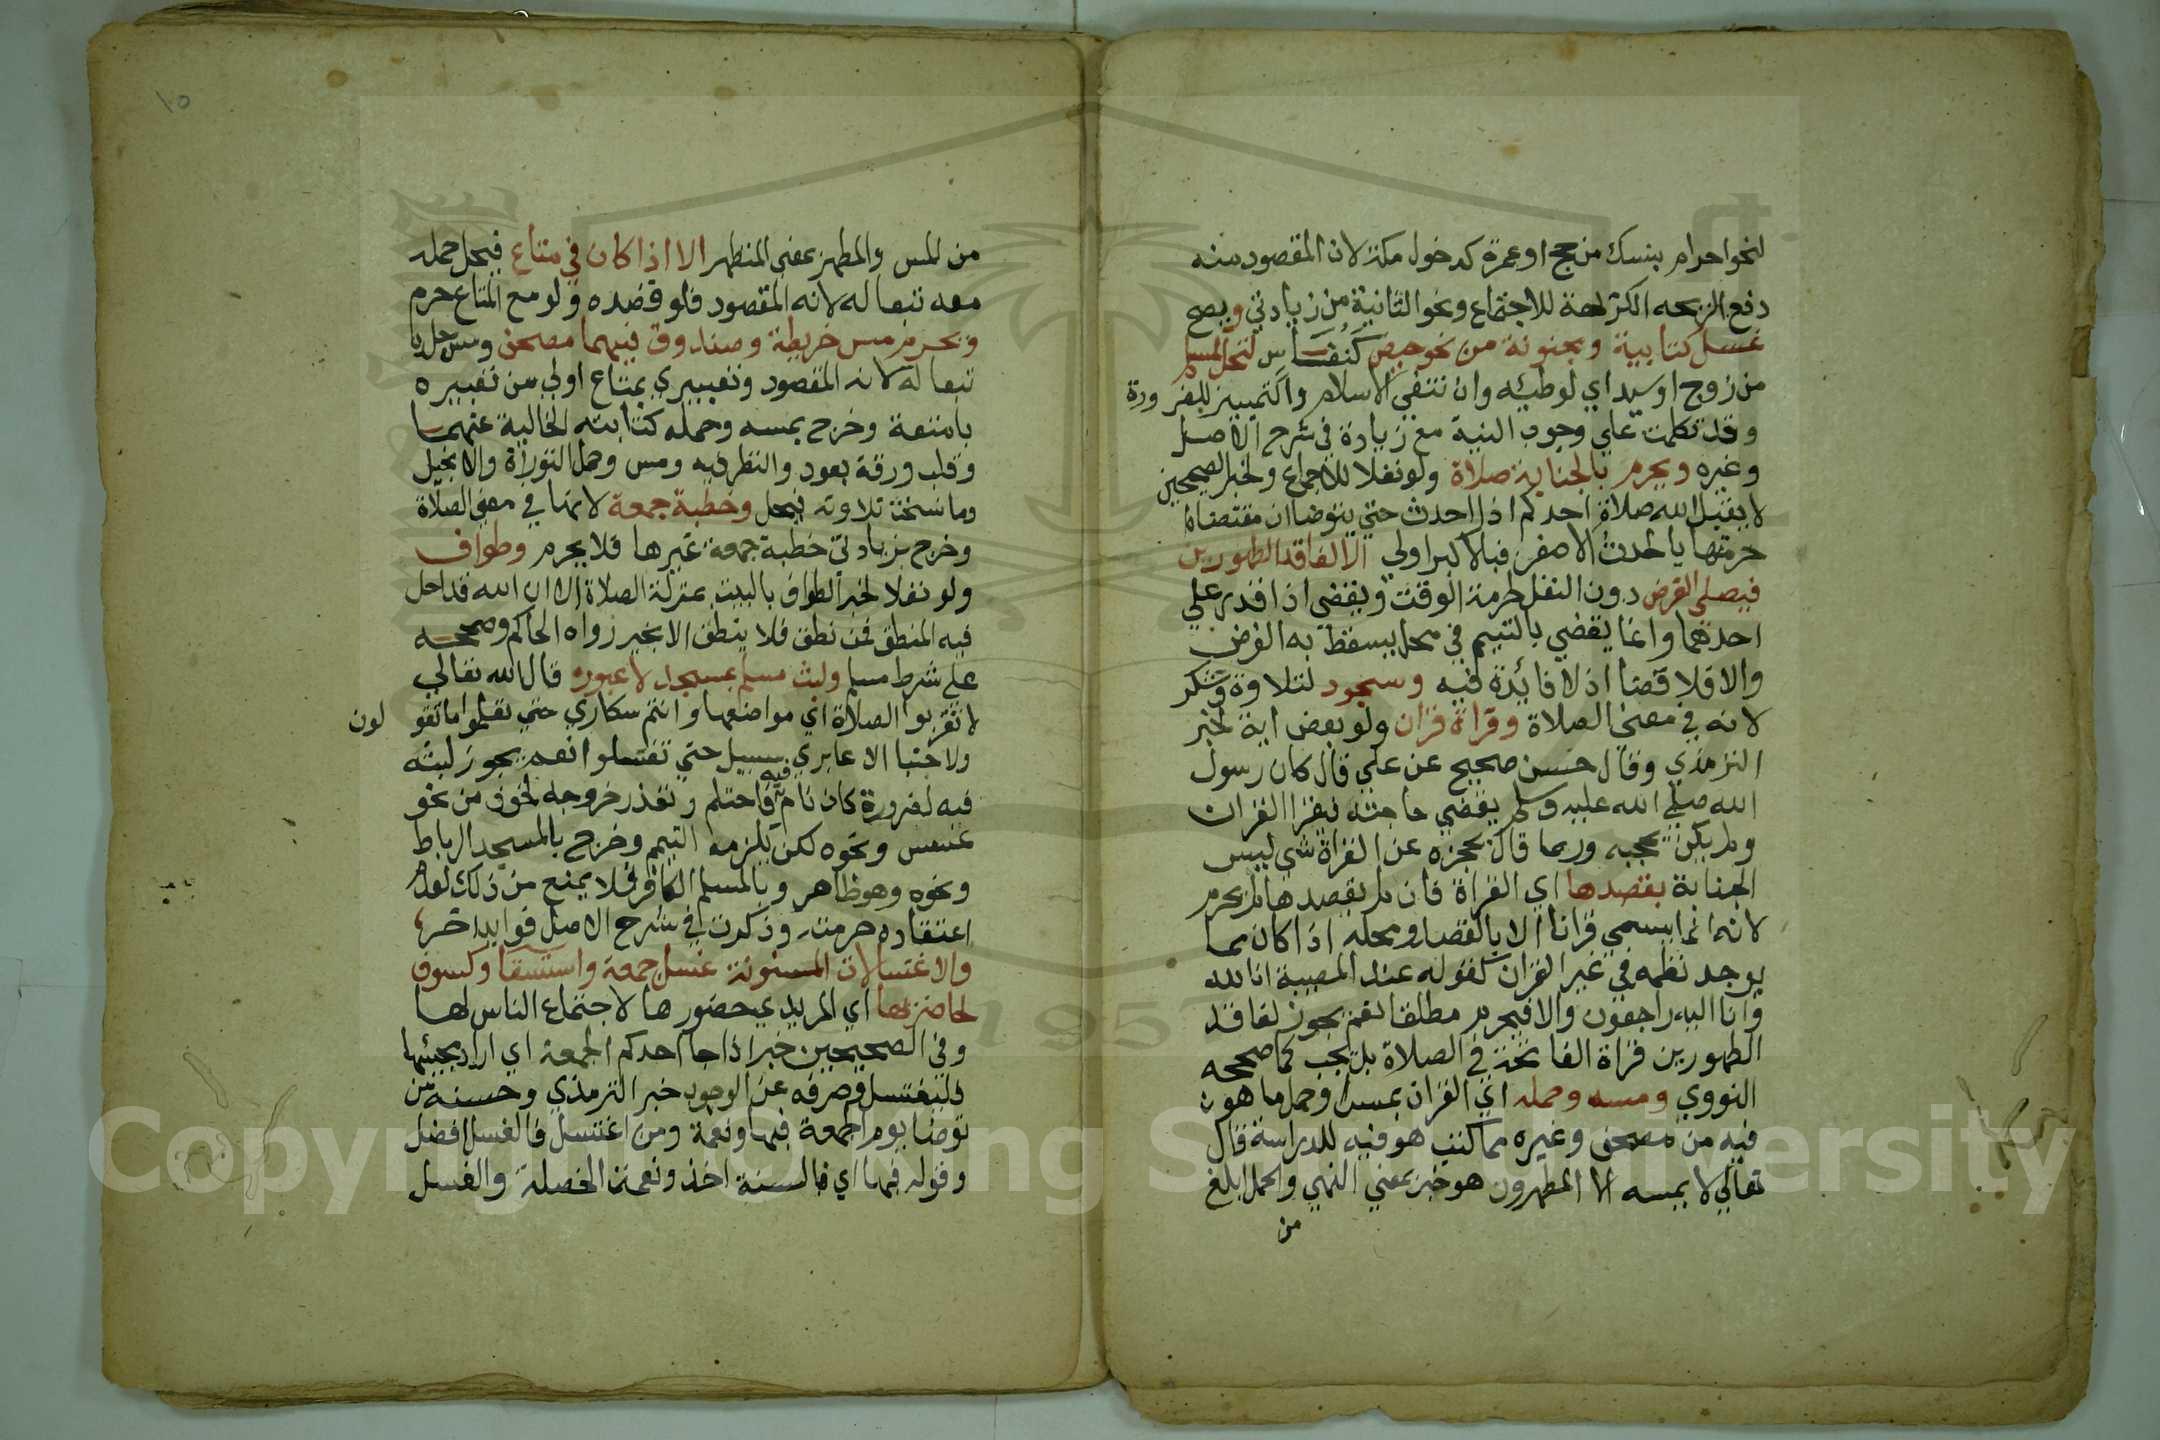 لنحو احرام بنسك من حج او عمرة كدخول مكة لان المقصود منه
دفع الريحه الكريهة للاجتماع ونحو الثانية من زيادتي ويصح
غسل كتابية ومجنونة من نحو حيض كنفاس لتحل لمسلم
من زوج او سيد اي لوطئه وان تنفي الاسلام والتمييز للضرورة
وقد تكلمت علي وجوب النية مع زيادة في شرح الاصل
وغيره ويحرم بالجنابة صلاة ولو نفلا للاجماع ولخبر الصحيحين
لا يقبل الله صلاة احدكم اذا احدث حتي يتوضا ان مقتضاه
حرمتها بالحدث الاصغر فبالاكبر اولي الا لفاقد الطهورين
فيصلي الفرض دون النفل لحرمة الوقت ويقضي اذا قدر علي
احدهما وانما يقضي بالتيمم في محل يسقط به الفرض
والا فلا قضا اذ لا فائدة فيه وسجود لتلاوة وشكر
لانه في معني الصلاة وقراة قران ولو بعض اية لخبر
الترمذي وقال حسن صحيح عن علي قال كان رسول
الله صلي الله عليه وسلم يقضي حاجته فيقرا القران
ولم يكن يحجبه وربما قال يحجزه عن القراة شي ليس
الجنابة بقصدها اي القراة فان لم يقصدها لم يحرم
لانه انما يسمي قرانا الا بالقصد ومحله اذا كان مما
يوجد نظمه في غير القران كقوله عند المصيبة انا لله
وانا اليه راجعون والا فيحرم مطلقا نعم يجوز لفاقد
الطهورين قراة الفاتحة في الصلاة بل يجب كما صححه
النووي ومسه وحمله اي القران بمس وحمل ما هو
فيه من مصحف وغيره مما كتب هو فيه للدراسة قال
تعالي لا يمسه الا المطهرون هو خبر بمعني النهي والحمل ابلغ
من
١٥
من المس والمطهر بمعني المتطهر الا اذا كان في متاع فيحل حمله
معه تبعا له لانه المقصود فلو قصده ولو مع المتاع حرم
ويحرم مس خريطة وصندوق فيهما مصحف ومس حل با
تبعا له لانه المقصود وتعبيري بمتاع اولي من تعبيره
بامتعة وخرج بمسه وحمله كتابته الخالية عنهما
وقلب ورقة بعود والنظر فيه ومس وحمل التوراة والانجيل
وما نسخت تلاوته فيحل وخطبة جمعة لانها في معني الصلاة
وخرج بزيادتي خطبة جمعة غيرها فلا يحرم وطواف
ولو نفلا لخبر الطواف بالبيت بمنزلة الصلاة الا ان الله قد احل
فيه المنطق فمن نطق فلا ينطق الا بخير رواه الحاكم وصححه
علي شرط مسلم ولبث مسلم بمسجد لا عبوره قال الله تعالي
لا تقربوا الصلاة اي مواضعها وانتم سكاري حتي تعلموا ما تقولون
ولا جنبا الا عابري سبيل حتي تغتسلوا نعم يجوز لبثه
فيه لضرورة كان نام فيه فاحتلم وتعذر خروجه لخوف من نحو
عسس ونحوه لكن يلزمه التيمم وخرج بالمسجد الرباط
ونحوه وهو ظاهر وبالمسلم الكافر فلا يمنع من ذلك لعدم
اعتقاده حرمته وذكرت في شرح الاصل فوايد اخر
والاغتسالات المسنونة غسل جمعة واستسقا وكسوف
لحاضريها اي المريدي حضورها لاجتماع الناس لها
وفي الصحيحين خبر اذا جا احدكم الجمعة اي اراد مجيئها
فليغتسل وصرفه عن الوجوب خبر الترمذي وحسنه من
توضا يوم الجمعة فبها ونعمة ومن اغتسل فالغسل افضل
وقوله فبها اي فالسنة اخذ ونعمت الخصلة والغسل
Copyright © King Saud University
1957